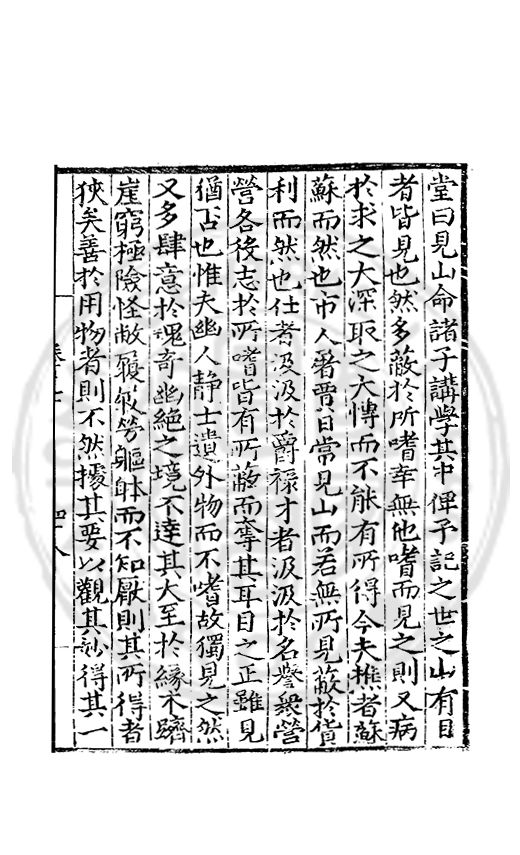 堂曰見山命諸子講學其中俾予記之世之山有目
者皆見也然多蔽於所嗜幸無他嗜而見之則又病
於求之大深取之大慱而不能有所得今夫樵者蘇
蘇而然也市人署賈日常見山而若無所見蔽於貨
利而然也仕者汲汲於爵祿才者汲汲於名譽衆營
營各後志於所嗜皆有所蔽而奪其耳目之正雖見
猶否也惟夫幽人静士遺外物而不嗜故獨見之然
又多肆意於瑰奇幽絶之境不達其大至於緣木躋
崖窮極險怪敝屨疲勞軀體而不知厭則其所得者
狹矣善於用物者則不然據其要以觀其妙得其一